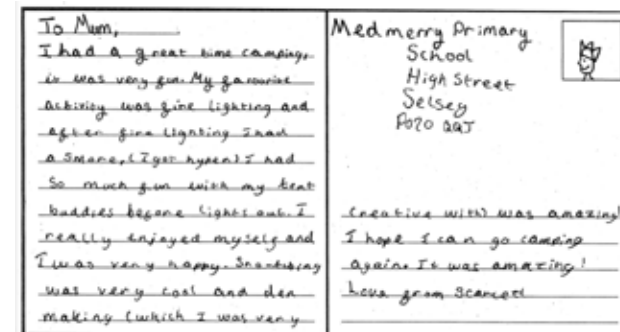 To Mum,
I had a great time camping,
it was very fun. My favourite
activity was fire lighting and
after fire lighting I had
a Smore, (I got hyper) I had
So much fun with my tent
buddies before lights out. I
really enjoyed myself and
I was very happy.
was very cool and den
making (which I was very
Medmerry Primary
School
High Street
Selsey
PO20
creative with) was amazing!
I hope I can go camping
again. It was amazing!
Love from Scarlett